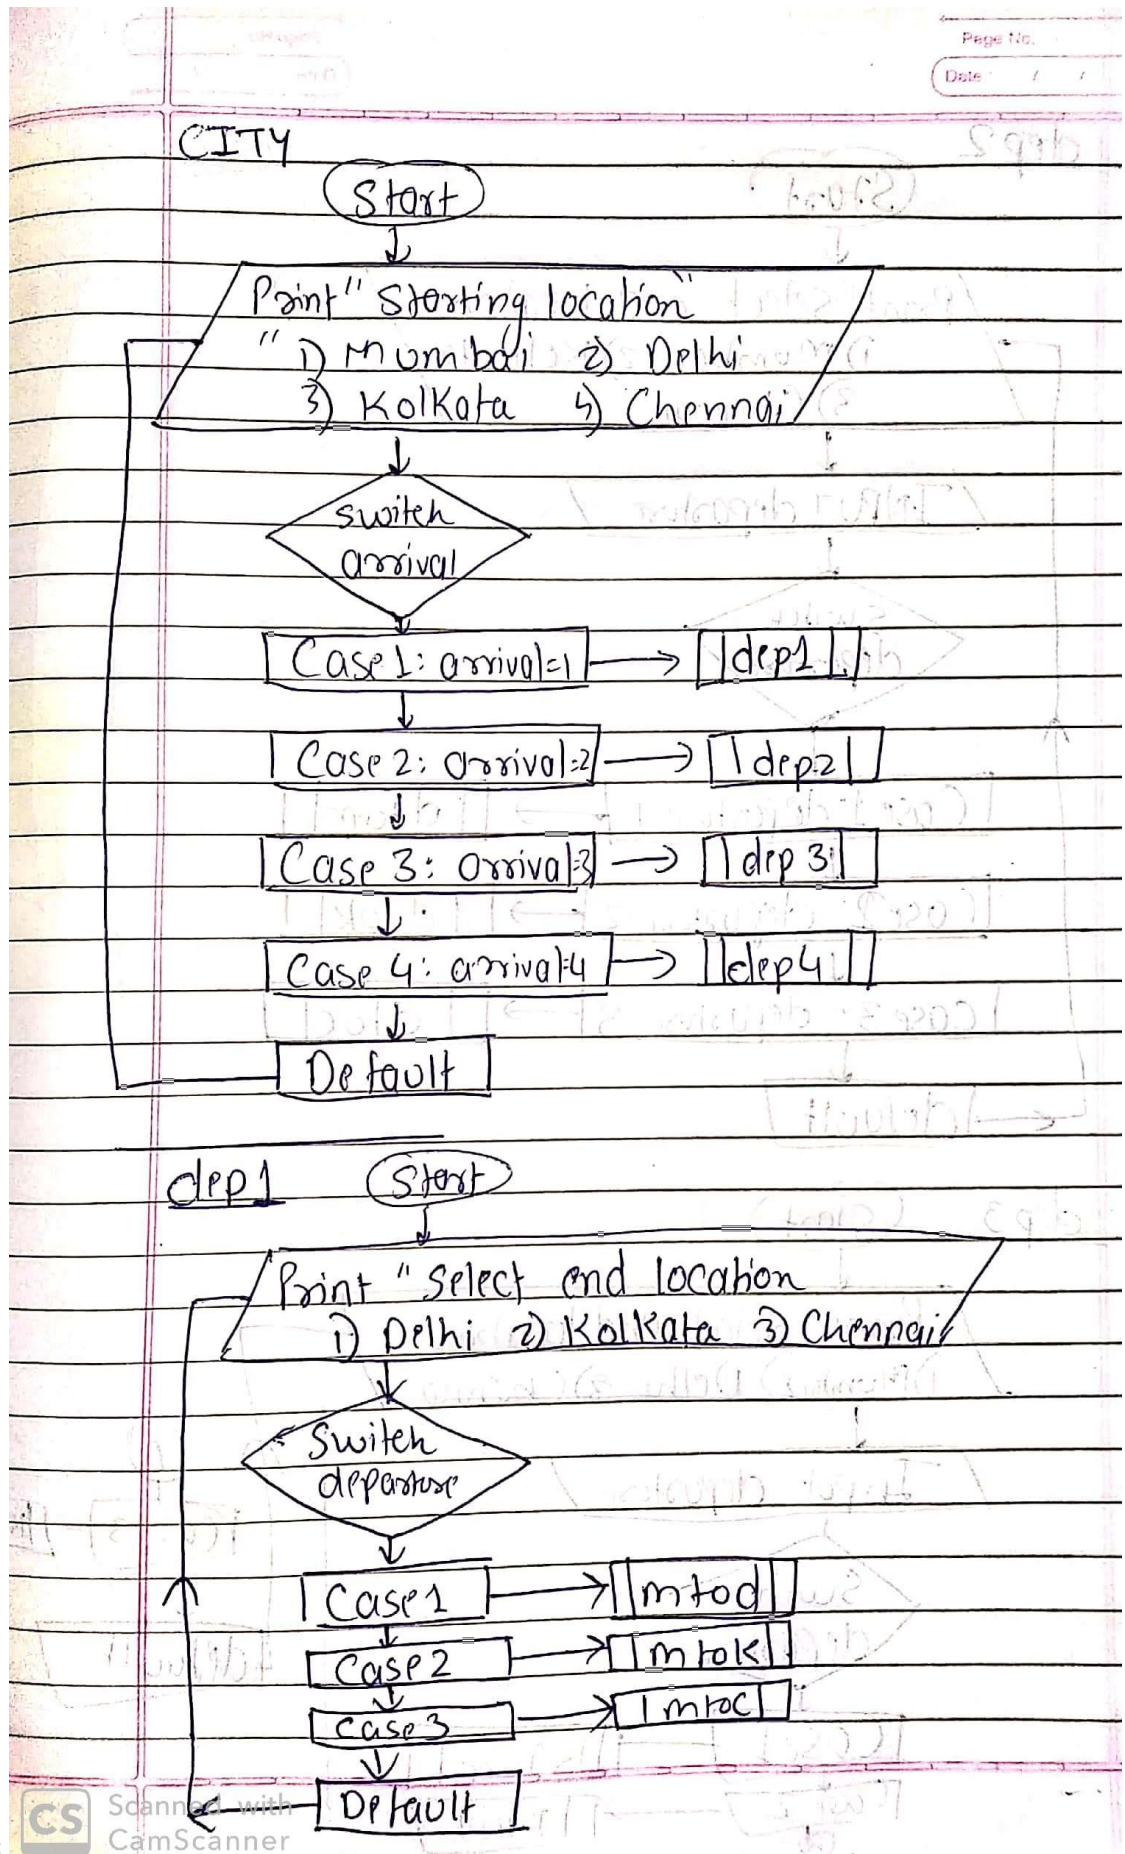 Page No.
Date / /
CITY
Start
Print " Starting location"
" 1) Mumbai 2) Delhi
3) Kolkata 4) Chennai
switch
arrival
Case 1: arrival=1 dep1
Case 2: arrival=2 dep2
Case 3: arrival=3 dep 3
Case 4: arrival=4 dep4
Default
dep1 Start
Print " Select end location
1) Delhi 2) Kolkata 3) Chennai
Switch
departure
Case 1 mtod
Case 2 mtok
Case 3 mtoc
Default
CS Scanned with
CamScanner